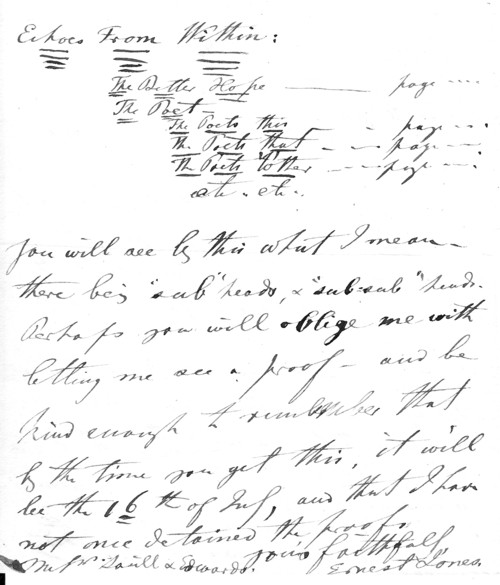 Echoes From Within:
The Better Hope ——— page ....
The Poet —
The Poets this — - page ...
The Poets that - — - page ...
The Poets t'other — - page ...
etc. etc.
you will see by this what I mean —
there being "sub" heads, & "sub-sub" heads.
Perhaps you will oblige me with
letting me see a proof — and be
kind enough to remember that
by the time you get this, it will
be the 16th of , and that I have
not once detained the proofs
yours faithfully
& Edwards. Ernest Jones